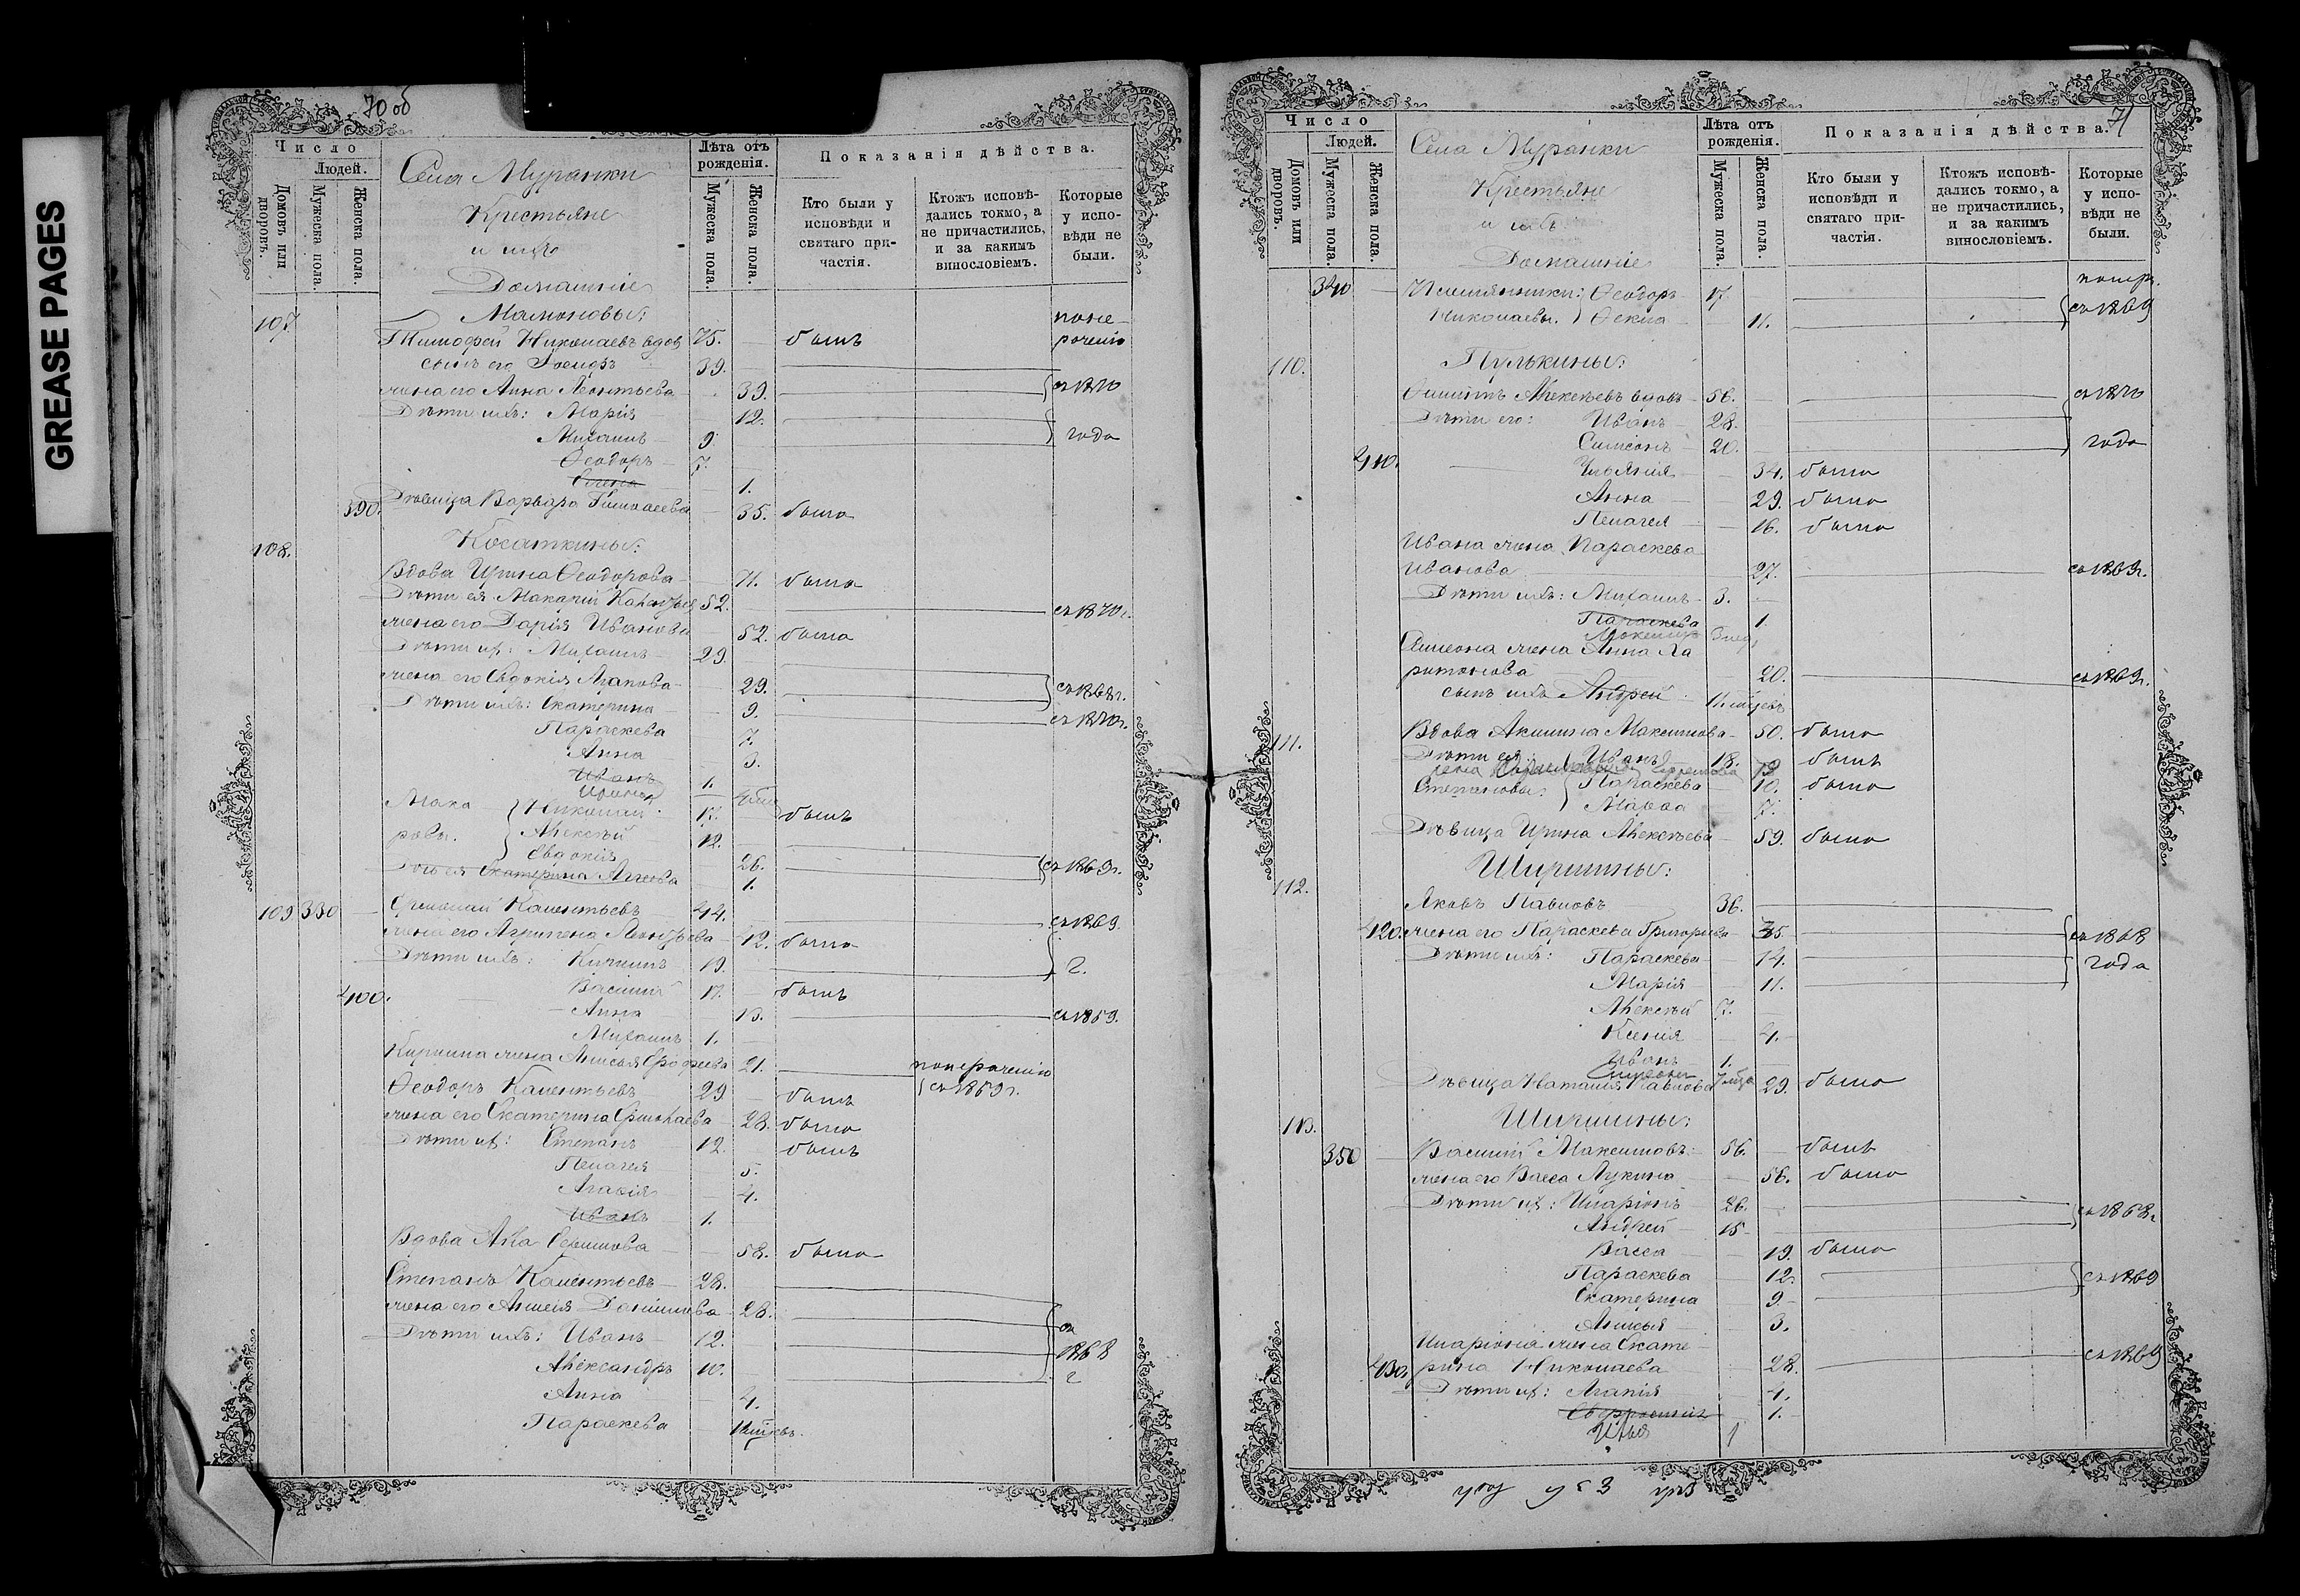 GREASE PAGES
70 об
Число
Людей.
Домовъ или дворовъ.
Мужеска пола.
Женска пола.
Села Муранки
Крестьяне
и ихъ
Домашніе
Лѣта отъ рожденія.
Мужеска пола.
Женска пола.
Показанія дѣйства.
Кто были у исповѣди и святаго причастія.
Ктожъ исповѣдались токмо, а не причастились, и за какимъ винословіемъ.
Которые у исповѣди не были.
107 Мамоновы:
Тимофей Николаевъ вдов 75. былъ
сынъ его 39.
жена его Анна Леонтьева 39.
Дѣти ихъ: Марія 12.
Михаилъ 9.
Ѳеодоръ 7. года
1.
390. Дѣвица Варвара 35. была
108. Косаткины:
Вдова Ирина Ѳеодорова 71. была
Дѣти ея Макарій 52. съ 1870 г.
жена его Дарія Иванова 52. была
Дѣти их: Михаилъ 29.
жена его Евдокія Агапова 29. съ 1868 г.
Дѣти ихъ: Екатерина 9. съ 1870 г.
Параскева 7.
Анна 3.
Иванъ 1.
Мака Николай 17. былъ
ровы. Алексѣй 12.
Евдокія 26. съ 1869 г.
Дочь ея Екатерина 1.
109 330 Калентьевъ 44. съ 1869.
жена его Агрипена Леонтьева 42. была
Дѣти ихъ: Кирилъ 19. г.
400. Василій 17. былъ
Анна 13. съ 1859.
Михаилъ 1.
Кирилла жена Анисья 21. по нерачению
Ѳеодоръ Калентьевъ 29 былъ съ 1859 г.
жена его Екатерина 28. была
Дѣти их: Степанъ 12. былъ
Пелагея 5.
Агафія 4.
Иванъ 1.
Вдова 58. была
Степанъ Калентьевъ 28.
жена его Данилова 28. съ
Дѣти ихъ: Иванъ 12. 1868
Александръ 10. г
Анна 4.
Параскева
71
Число
Людей.
Домовъ или дворовъ.
Мужеска пола.
Женска пола.
Села Муранки
Крестьяне
и ихъ
Домашніе
Лѣта отъ рожденія.
Мужеска пола.
Женска пола.
Показанія дѣйства.
Кто были у исповѣди и святаго причастія.
Ктожъ исповѣдались токмо, а не причастились, и за какимъ винословіемъ.
Которые у исповѣди не были.
340 Племянники: Ѳеодоръ 17. понер.
Николаевы. Ѳекла 11. съ 1869
110. Пулькины:
Алексѣевъ вдовъ 56. съ 1870
Дѣти его: Иванъ 28.
Симеонъ 20. года
410. 34. была
Анна 29. была
Пелагея 16. была
Ивана жена Параскева
Иванова 27. съ 1869 г.
Дѣти ихъ: Михаилъ 3.
Параскева 1.
Симеона жена Анна Ха
ритонова 20. съ 1869 г.
сынъ ихъ Андрей
111. Вдова Акилина Максимова 50. была
Дѣти ея: Иванъ 18. былъ
Степановы: Параскева 10. была
Мавра 7.
Дѣвица Ирина Алексѣева 59. была
112. Ширшины:
Яковъ Павловъ 36.
420. жена его Параскева Григорьева 35 съ 1868
Дѣти ихъ: Параскева 14. года
Марія 11.
Алексѣй 7.
Ксенія 4.
Иванъ 1.
Дѣвица Наталія Павлова 29. была
113. Ширшины:
350 Василій Максимовъ 56. былъ
жена его Васса Лукина 56. была
Дѣти их: Иларіонъ 26. съ 1868 г
Андрей 15
Васса 19. была
Параскева 12. съ 1869
Екатерина 9
Анисья 3.
Иларіона жена Екате
430. рина Николаева 28. съ 1869
Дѣти их: Агапія 4.
1.
Илья 1